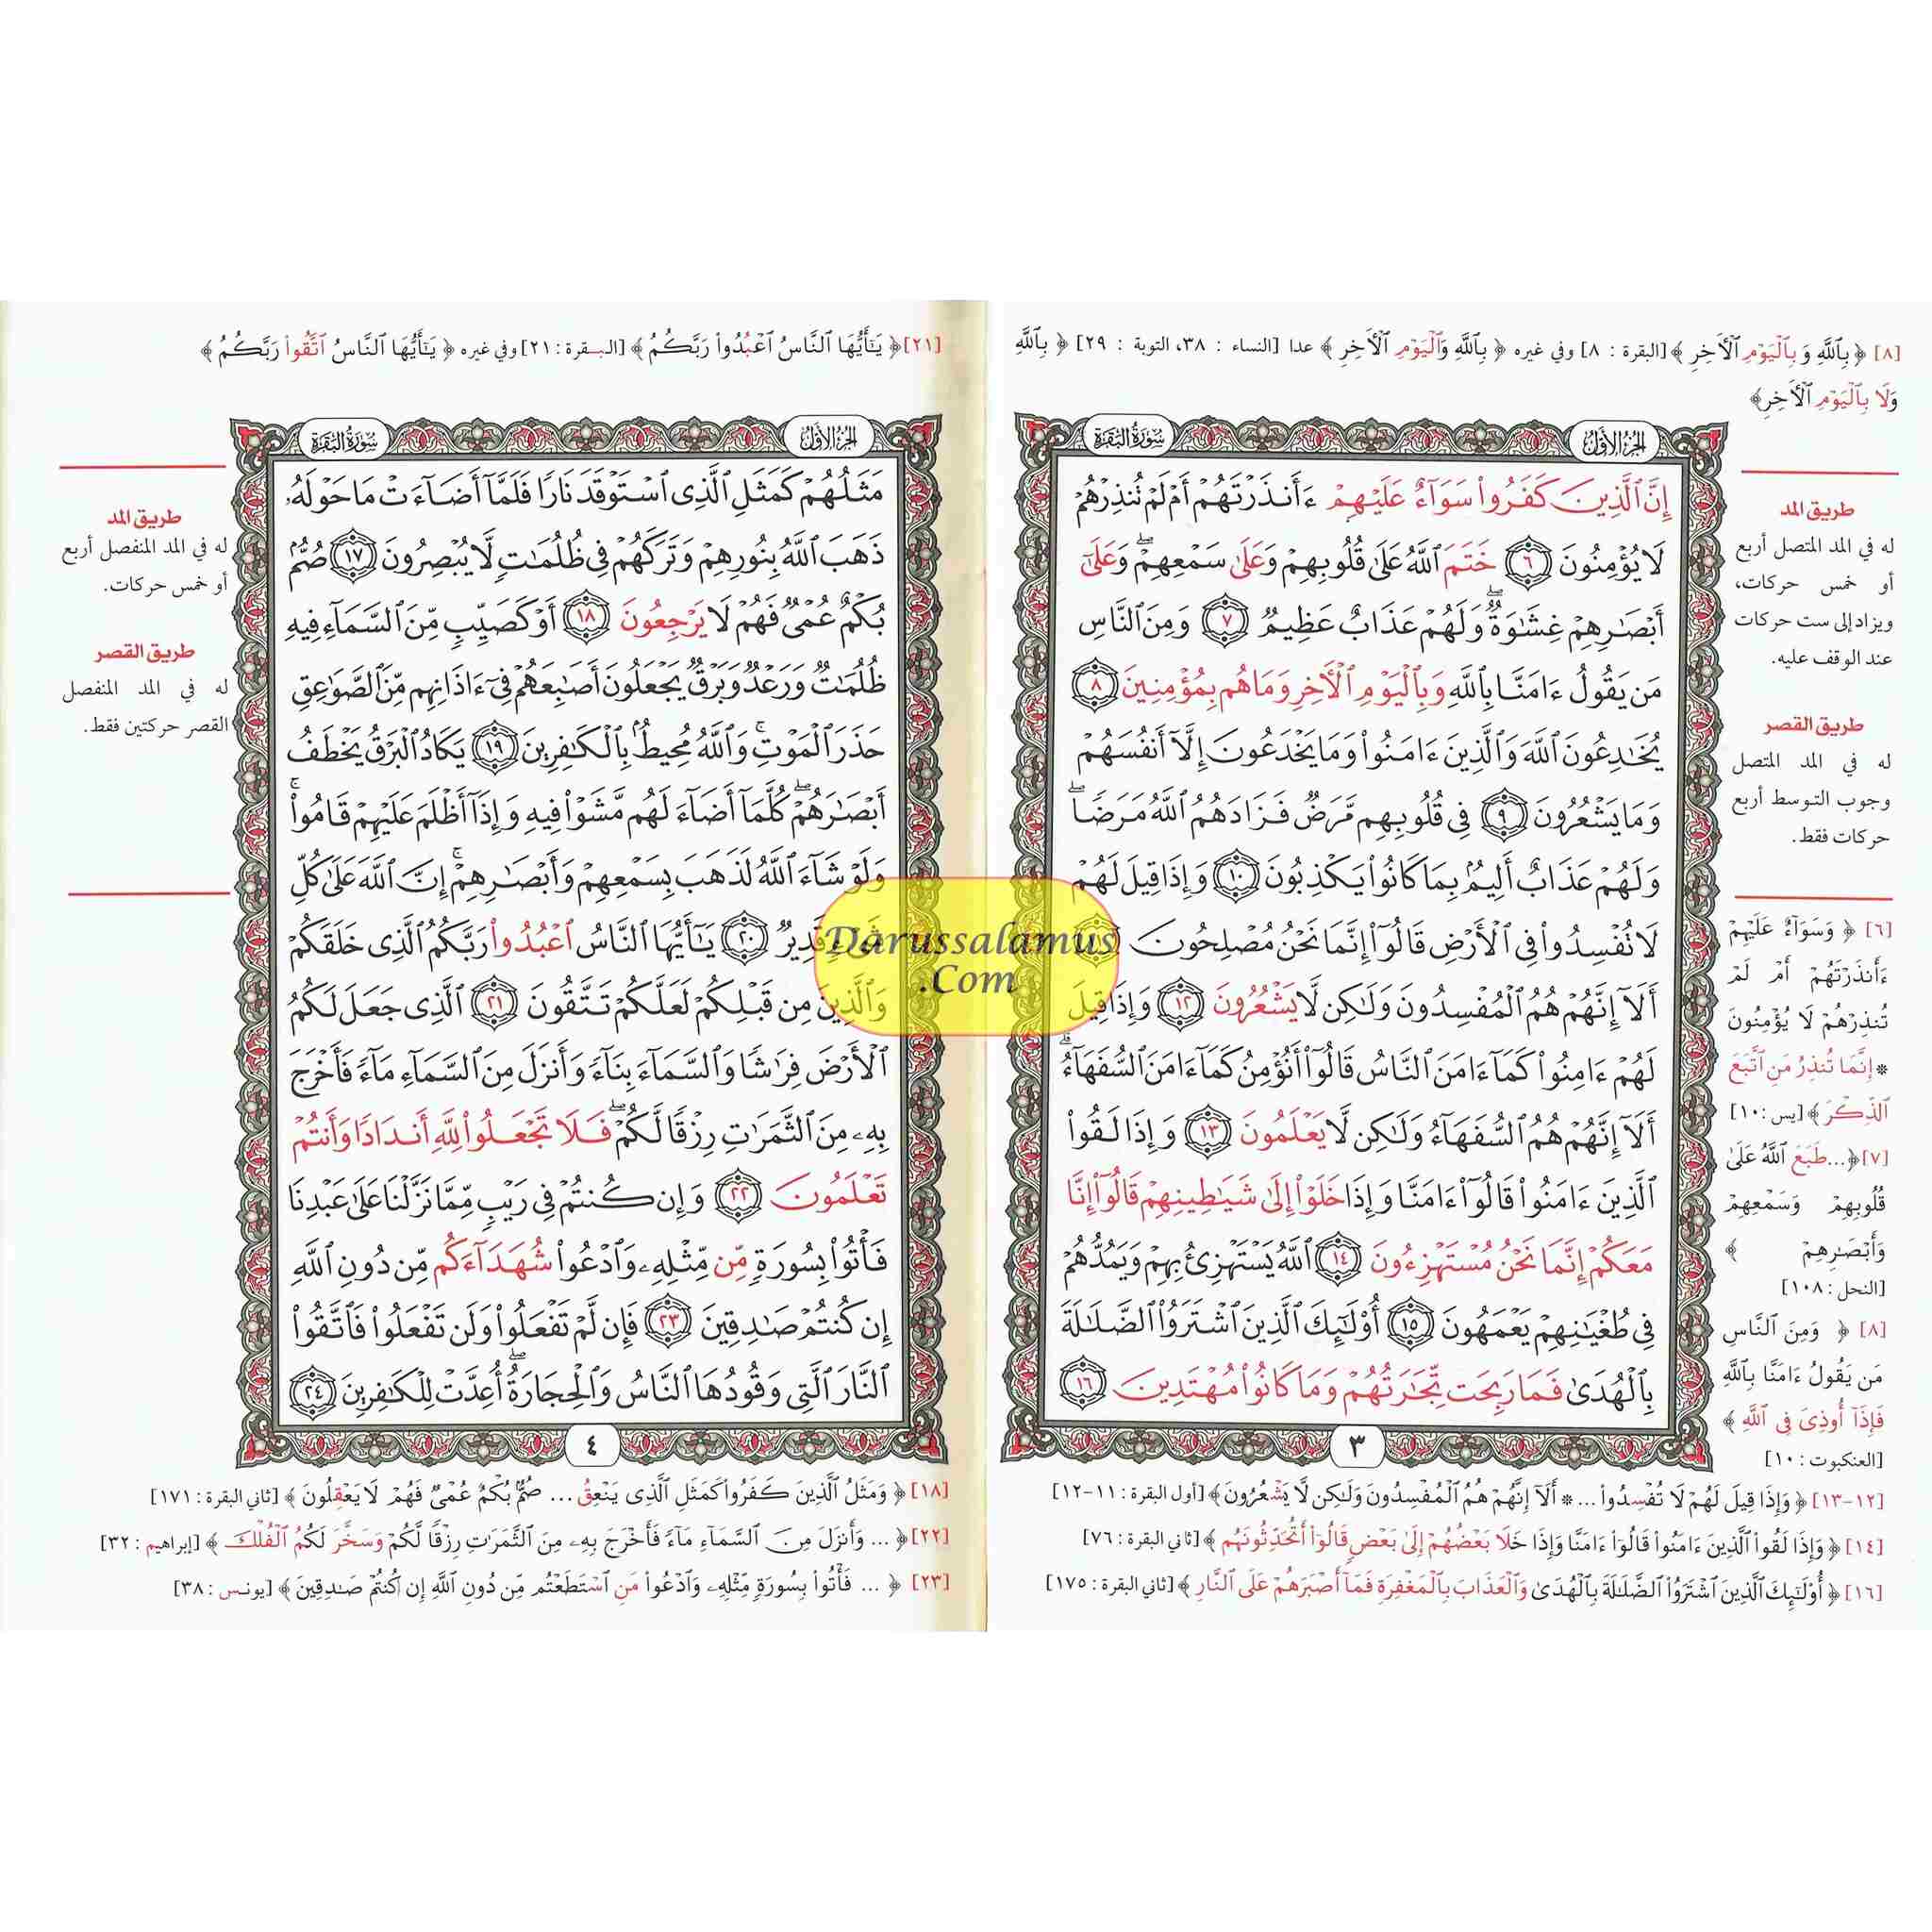 [٨] ﴿ بِٱللَّهِ وَبِٱلْيَوْمِ ٱلْأَخِرِ ﴾[البقرة : ٨] وفي غيره ﴿ بِٱللَّهِ وَٱلْيَوْمِ ٱلْأَخِرِ ﴾ عدا [النساء : ٣٨، التوبة : ٢٩] ﴿ بِٱللَّهِ
وَلَا بِٱلْيَوْمِ ٱلْأَخِرِ﴾
الجزء الأول
سورة البقرة
إِنَّ ٱلَّذِينَ كَفَرُوا۟ سَوَآءٌ عَلَيْهِمْ ءَأَنذَرْتَهُمْ أَمْ لَمْ تُنذِرْهُمْ
لَا يُؤْمِنُونَ ٦ خَتَمَ ٱللَّهُ عَلَىٰ قُلُوبِهِمْ وَعَلَىٰ سَمْعِهِمْ ۖ وَعَلَىٰٓ
أَبْصَٰرِهِمْ غِشَٰوَةٌ ۖ وَلَهُمْ عَذَابٌ عَظِيمٌ ٧ وَمِنَ ٱلنَّاسِ
مَن يَقُولُ ءَامَنَّا بِٱللَّهِ وَبِٱلْيَوْمِ ٱلْأَخِرِ وَمَا هُم بِمُؤْمِنِينَ ٨
يُخَٰدِعُونَ ٱللَّهَ وَٱلَّذِينَ ءَامَنُوا۟ وَمَا يَخْدَعُونَ إِلَّآ أَنفُسَهُمْ
وَمَا يَشْعُرُونَ ٩ فِى قُلُوبِهِم مَّرَضٌ فَزَادَهُمُ ٱللَّهُ مَرَضًا ۖ
وَلَهُمْ عَذَابٌ أَلِيمٌۢ بِمَا كَانُوا۟ يَكْذِبُونَ ١٠ وَإِذَا قِيلَ لَهُمْ
لَا تُفْسِدُوا۟ فِى ٱلْأَرْضِ قَالُوٓا۟ إِنَّمَا نَحْنُ مُصْلِحُونَ
أَلَآ إِنَّهُمْ هُمُ ٱلْمُفْسِدُونَ وَلَٰكِن لَّا يَشْعُرُونَ ١٢ وَإِذَا قِيلَ
لَهُمْ ءَامِنُوا۟ كَمَآ ءَامَنَ ٱلنَّاسُ قَالُوٓا۟ أَنُؤْمِنُ كَمَآ ءَامَنَ ٱلسُّفَهَآءُ ۗ
أَلَآ إِنَّهُمْ هُمُ ٱلسُّفَهَآءُ وَلَٰكِن لَّا يَعْلَمُونَ ١٣ وَإِذَا لَقُوا۟
ٱلَّذِينَ ءَامَنُوا۟ قَالُوٓا۟ ءَامَنَّا وَإِذَا خَلَوْا۟ إِلَىٰ شَيَٰطِينِهِمْ قَالُوٓا۟ إِنَّا
مَعَكُمْ إِنَّمَا نَحْنُ مُسْتَهْزِءُونَ ١٤ ٱللَّهُ يَسْتَهْزِئُ بِهِمْ وَيَمُدُّهُمْ
فِى طُغْيَٰنِهِمْ يَعْمَهُونَ ١٥ أُو۟لَٰٓئِكَ ٱلَّذِينَ ٱشْتَرَوُا۟ ٱلضَّلَٰلَةَ
بِٱلْهُدَىٰ فَمَا رَبِحَت تِّجَٰرَتُهُمْ وَمَا كَانُوا۟ مُهْتَدِينَ ١٦
٣
طريق المد
له في المد المتصل أربع
أو خمس حركات،
ويزاد إلى ست حركات
عند الوقف عليه.
طريق القصر
له في المد المتصل
وجوب التوسط أربع
حركات فقط.
[٦] ﴿ وَسَوَآءٌ عَلَيْهِمْ
ءَأَنذَرْتَهُمْ أَمْ لَمْ
تُنذِرْهُمْ لَا يُؤْمِنُونَ
* إِنَّمَا تُنذِرُ مَنِ ٱتَّبَعَ
ٱلذِّكْرَ ﴾ [يس : ١٠]
[٧] ﴿... طَبَعَ ٱللَّهُ عَلَىٰ
قُلُوبِهِمْ وَسَمْعِهِمْ
وَأَبْصَٰرِهِمْ ﴾
[النحل : ١٠٨]
[٨] ﴿ وَمِنَ ٱلنَّاسِ
مَن يَقُولُ ءَامَنَّا بِٱللَّهِ
فَإِذَآ أُوذِىَ فِى ٱللَّهِ ﴾
[العنكبوت : ١٠]
[١٢-١٣] ﴿ وَإِذَا قِيلَ لَهُمْ لَا تُفْسِدُوا۟ ... * أَلَآ إِنَّهُمْ هُمُ ٱلْمُفْسِدُونَ وَلَٰكِن لَّا يَشْعُرُونَ﴾ [أول البقرة : ١١-١٢]
[١٤] ﴿ وَإِذَا لَقُوا۟ ٱلَّذِينَ ءَامَنُوا۟ قَالُوٓا۟ ءَامَنَّا وَإِذَا خَلَا بَعْضُهُمْ إِلَىٰ بَعْضٍ قَالُوٓا۟ أَتُحَدِّثُونَهُم ﴾ [ثاني البقرة : ٧٦]
[١٦] ﴿ أُو۟لَٰٓئِكَ ٱلَّذِينَ ٱشْتَرَوُا۟ ٱلضَّلَٰلَةَ بِٱلْهُدَىٰ وَٱلْعَذَابَ بِٱلْمَغْفِرَةِ فَمَآ أَصْبَرَهُمْ عَلَى ٱلنَّارِ ﴾ [ثاني البقرة : ١٧٥]
[٢١] ﴿ يَٰٓأَيُّهَا ٱلنَّاسُ ٱعْبُدُوا۟ رَبَّكُمُ ﴾ [البقرة : ٢١] وفي غيره ﴿ يَٰٓأَيُّهَا ٱلنَّاسُ ٱتَّقُوا۟ رَبَّكُمُ ﴾
الجزء الأول
سورة البقرة
مَثَلُهُمْ كَمَثَلِ ٱلَّذِى ٱسْتَوْقَدَ نَارًا فَلَمَّآ أَضَآءَتْ مَا حَوْلَهُۥ
ذَهَبَ ٱللَّهُ بِنُورِهِمْ وَتَرَكَهُمْ فِى ظُلُمَٰتٍ لَّا يُبْصِرُونَ ١٧ صُمٌّۢ
بُكْمٌ عُمْىٌ فَهُمْ لَا يَرْجِعُونَ ١٨ أَوْ كَصَيِّبٍ مِّنَ ٱلسَّمَآءِ فِيهِ
ظُلُمَٰتٌ وَرَعْدٌ وَبَرْقٌ يَجْعَلُونَ أَصَٰبِعَهُمْ فِىٓ ءَاذَانِهِم مِّنَ ٱلصَّوَٰعِقِ
حَذَرَ ٱلْمَوْتِ ۚ وَٱللَّهُ مُحِيطٌۢ بِٱلْكَٰفِرِينَ ١٩ يَكَادُ ٱلْبَرْقُ يَخْطَفُ
أَبْصَٰرَهُمْ ۖ كُلَّمَآ أَضَآءَ لَهُم مَّشَوْا۟ فِيهِ وَإِذَآ أَظْلَمَ عَلَيْهِمْ قَامُوا۟ ۚ
وَلَوْ شَآءَ ٱللَّهُ لَذَهَبَ بِسَمْعِهِمْ وَأَبْصَٰرِهِمْ ۚ إِنَّ ٱللَّهَ عَلَىٰ كُلِّ
شَىْءٍ قَدِيرٌ ٢٠ يَٰٓأَيُّهَا ٱلنَّاسُ ٱعْبُدُوا۟ رَبَّكُمُ ٱلَّذِى خَلَقَكُمْ
وَٱلَّذِينَ مِن قَبْلِكُمْ لَعَلَّكُمْ تَتَّقُونَ ٢١ ٱلَّذِى جَعَلَ لَكُمُ
ٱلْأَرْضَ فِرَٰشًا وَٱلسَّمَآءَ بِنَآءً وَأَنزَلَ مِنَ ٱلسَّمَآءِ مَآءً فَأَخْرَجَ
بِهِۦ مِنَ ٱلثَّمَرَٰتِ رِزْقًا لَّكُمْ ۖ فَلَا تَجْعَلُوا۟ لِلَّهِ أَندَادًا وَأَنتُمْ
تَعْلَمُونَ ٢٢ وَإِن كُنتُمْ فِى رَيْبٍ مِّمَّا نَزَّلْنَا عَلَىٰ عَبْدِنَا
فَأْتُوا۟ بِسُورَةٍ مِّن مِّثْلِهِۦ وَٱدْعُوا۟ شُهَدَآءَكُم مِّن دُونِ ٱللَّهِ
إِن كُنتُمْ صَٰدِقِينَ ٢٣ فَإِن لَّمْ تَفْعَلُوا۟ وَلَن تَفْعَلُوا۟ فَٱتَّقُوا۟
ٱلنَّارَ ٱلَّتِى وَقُودُهَا ٱلنَّاسُ وَٱلْحِجَارَةُ ۖ أُعِدَّتْ لِلْكَٰفِرِينَ ٢٤
٤
طريق المد
له في المد المنفصل أربع
أو خمس حركات.
طريق القصر
له في المد المنفصل
القصر حركتين فقط.
[١٨] ﴿ وَمَثَلُ ٱلَّذِينَ كَفَرُوا۟ كَمَثَلِ ٱلَّذِى يَنْعِقُ ... صُمٌّۢ بُكْمٌ عُمْىٌ فَهُمْ لَا يَعْقِلُونَ ﴾ [ثاني البقرة : ١٧١]
[٢٢] ﴿ ... وَأَنزَلَ مِنَ ٱلسَّمَآءِ مَآءً فَأَخْرَجَ بِهِۦ مِنَ ٱلثَّمَرَٰتِ رِزْقًا لَّكُمْ وَسَخَّرَ لَكُمُ ٱلْفُلْكَ ﴾ [إبراهيم : ٣٢]
[٢٣] ﴿ ... فَأْتُوا۟ بِسُورَةٍ مِّثْلِهِۦ وَٱدْعُوا۟ مَنِ ٱسْتَطَعْتُم مِّن دُونِ ٱللَّهِ إِن كُنتُمْ صَٰدِقِينَ ﴾ [يونس : ٣٨]
Darussalamus
.Com